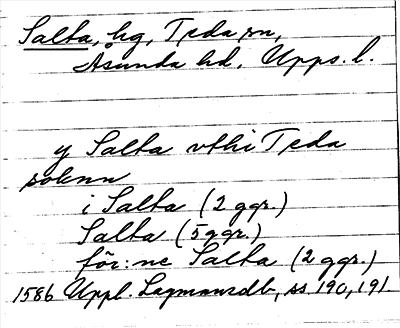 Salta, hg, Teda sn,
Åsunda hd. Upps. l.
y Salta vthi Teda
soknn
i Salta (2 ggr.)
Salta (5 ggr.)
för:ne Salta (2 ggr.)
1586 Uppl. Lagmansdb, ss. 190, 191